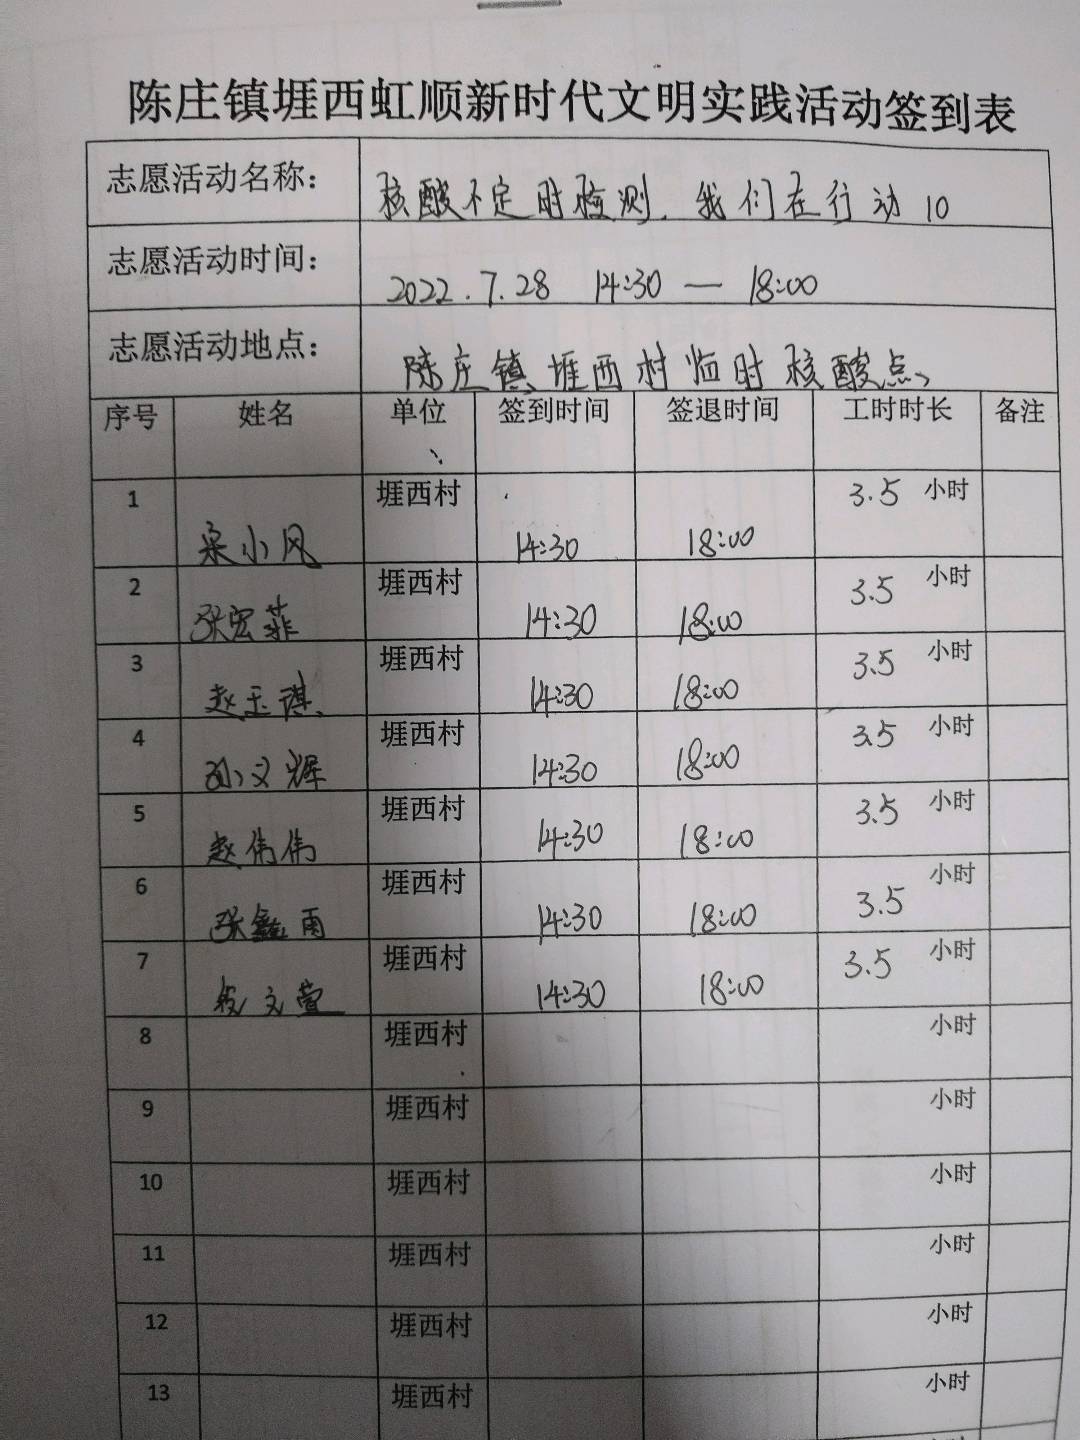 陈庄镇堐西虹顺新时代文明实践活动签到表
志愿活动名称： 核酸不定时检测，我们在行动 10
志愿活动时间： 2022.7.28 14:30 — 18:00
志愿活动地点： 陈庄镇堐西村临时核酸点
序号 姓名 单位 签到时间 签退时间 工时时长 备注
1 小风 堐西村 14:30 18:00 3.5 小时
2 张宏菲 堐西村 14:30 18:00 3.5 小时
3 赵玉琪 堐西村 14:30 18:00 3.5 小时
4 孙文辉 堐西村 14:30 18:00 3.5 小时
5 赵伟伟 堐西村 14:30 18:00 3.5 小时
6 张鑫雨 堐西村 14:30 18:00 3.5 小时
7 文萱 堐西村 14:30 18:00 3.5 小时
8 堐西村 小时
9 堐西村 小时
10 堐西村 小时
11 堐西村 小时
12 堐西村 小时
13 堐西村 小时